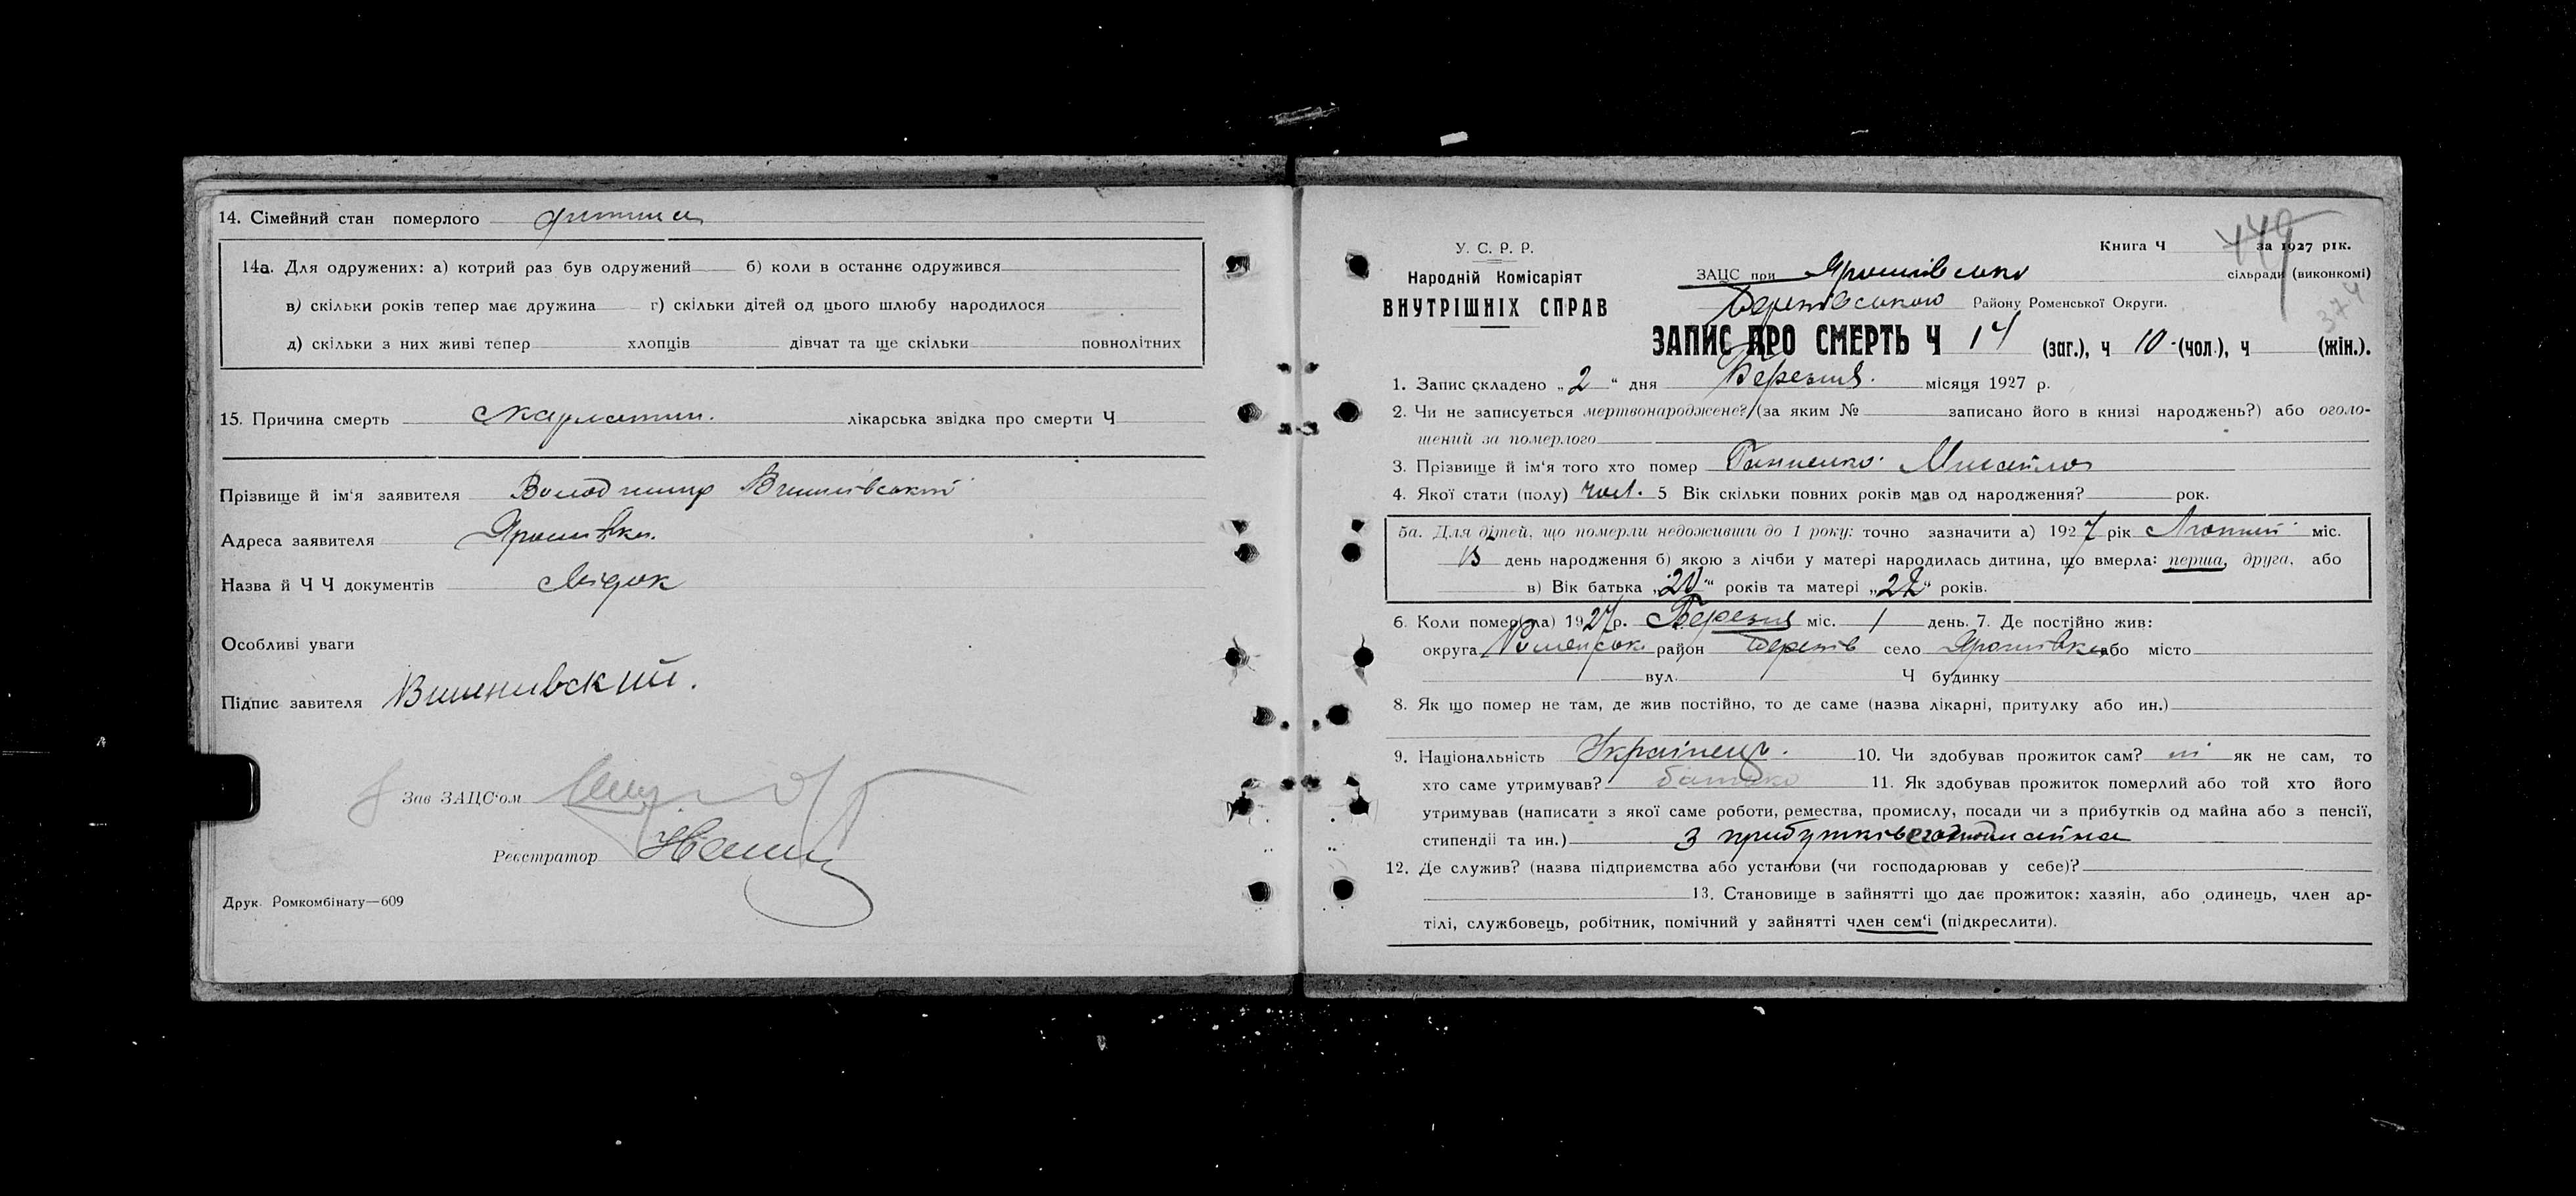 14. Сімейний стан померлого дитина
14а. Для одружених: а) котрий раз був одружений б) коли в останнє одружився
в) скільки років тепер має дружина г) скільки дітей од цього шлюбу народилося
д) скільки з них живі тепер хлопців дівчат та ще скільки повнолітних
15. Причина смерть скарлатин. лікарська звідка про смерти Ч
Прізвище й ім'я заявителя Володимир Вишнівський
Адреса заявителя Ярошівка.
Назва й Ч Ч документів
Особливі уваги
Підпис завителя Вишнивский.
Зав ЗАЦС'ом
Реєстратор
Друк. Ромкомбінату—609
У. С. Р. Р.
Народній Комісаріят
ВНУТРІШНІХ СПРАВ
Книга Ч за 1927 рік.
ЗАЦС при Ярошівсько сільради (виконкомі)
374
Району Роменської Округи.
ЗАПИС ПРО СМЕРТЬ Ч 14 (заг.), ч 10 (чол.), ч (жін.).
1. Запис складено „2“ дня Березня. місяця 1927 р.
2. Чи не записується мертвонароджене? (за яким № записано його в книзі народжень?) або оголо-
шений за померлого
3. Прізвище й ім'я того хто помер Михайло
4. Якої стати (полу) чол. 5 Вік скільки повних років мав од народження? рок.
5а. Для дітей, що померли недоживши до 1 року: точно зазначити а) 1927 рік Лютий міс.
день народження б) якою з лічби у матері народилась дитина, що вмерла: перша, друга, або
в) Вік батька „20“ років та матері „22“ років.
6. Коли помер(ла) 1927р. Березня міс. 1 день. 7. Де постійно жив:
округа Роменськ. район село Ярошівка або місто
вул. Ч будинку
8. Як що помер не там, де жив постійно, то де саме (назва лікарні, притулку або ин.)
9. Національність Українець. 10. Чи здобував прожиток сам? ні як не сам, то
хто саме утримував? батько 11. Як здобував прожиток померлий або той хто його
утримував (написати з якої саме роботи, ремества, промислу, посади чи з прибутків од майна або з пенсії,
стипендії та ин.) з прибутків майна
12. Де служив? (назва підприємства або установи (чи господарював у себе)?
13. Становище в зайнятті що дає прожиток: хазяін, або одинець, член ар-
тілі, службовець, робітник, помічний у зайнятті член сем'ї (підкреслити).